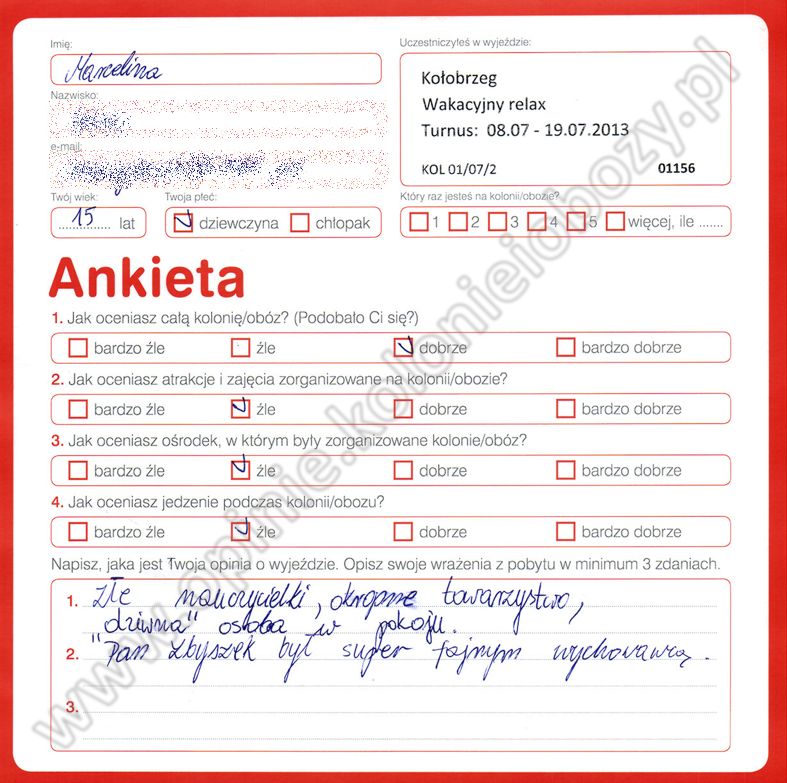 Imię:
Marcelina
Uczestniczyłeś w wyjeździe:
Kołobrzeg
Wakacyjny relax
Turnus: 08.07 - 19.07.2013
KOL 01/07/2 01156
Nazwisko:
e-mail:
Twój wiek: Twoja płeć: Który raz jesteś na kolonii/obozie?
15 lat dziewczyna chłopak 1 2 3 4 5 więcej, ile .......
Ankieta
1. Jak oceniasz całą kolonię/obóz? (Podobało Ci się?)
bardzo źle źle dobrze bardzo dobrze
2. Jak oceniasz atrakcje i zajęcia zorganizowane na kolonii/obozie?
bardzo źle źle dobrze bardzo dobrze
3. Jak oceniasz ośrodek, w którym były zorganizowane kolonie/obóz?
bardzo źle źle dobrze bardzo dobrze
4. Jak oceniasz jedzenie podczas kolonii/obozu?
bardzo źle źle dobrze bardzo dobrze
Napisz, jaka jest Twoja opinia o wyjeździe. Opisz swoje wrażenia z pobytu w minimum 3 zdaniach.
1. złe nauczycielki, okropne towarzystwo,
"dziwna" osoba w pokoju.
2. Pan Zbyszek był super fajnym wychowawcą.
3.
www.opinie.kolonieiobozy.pl